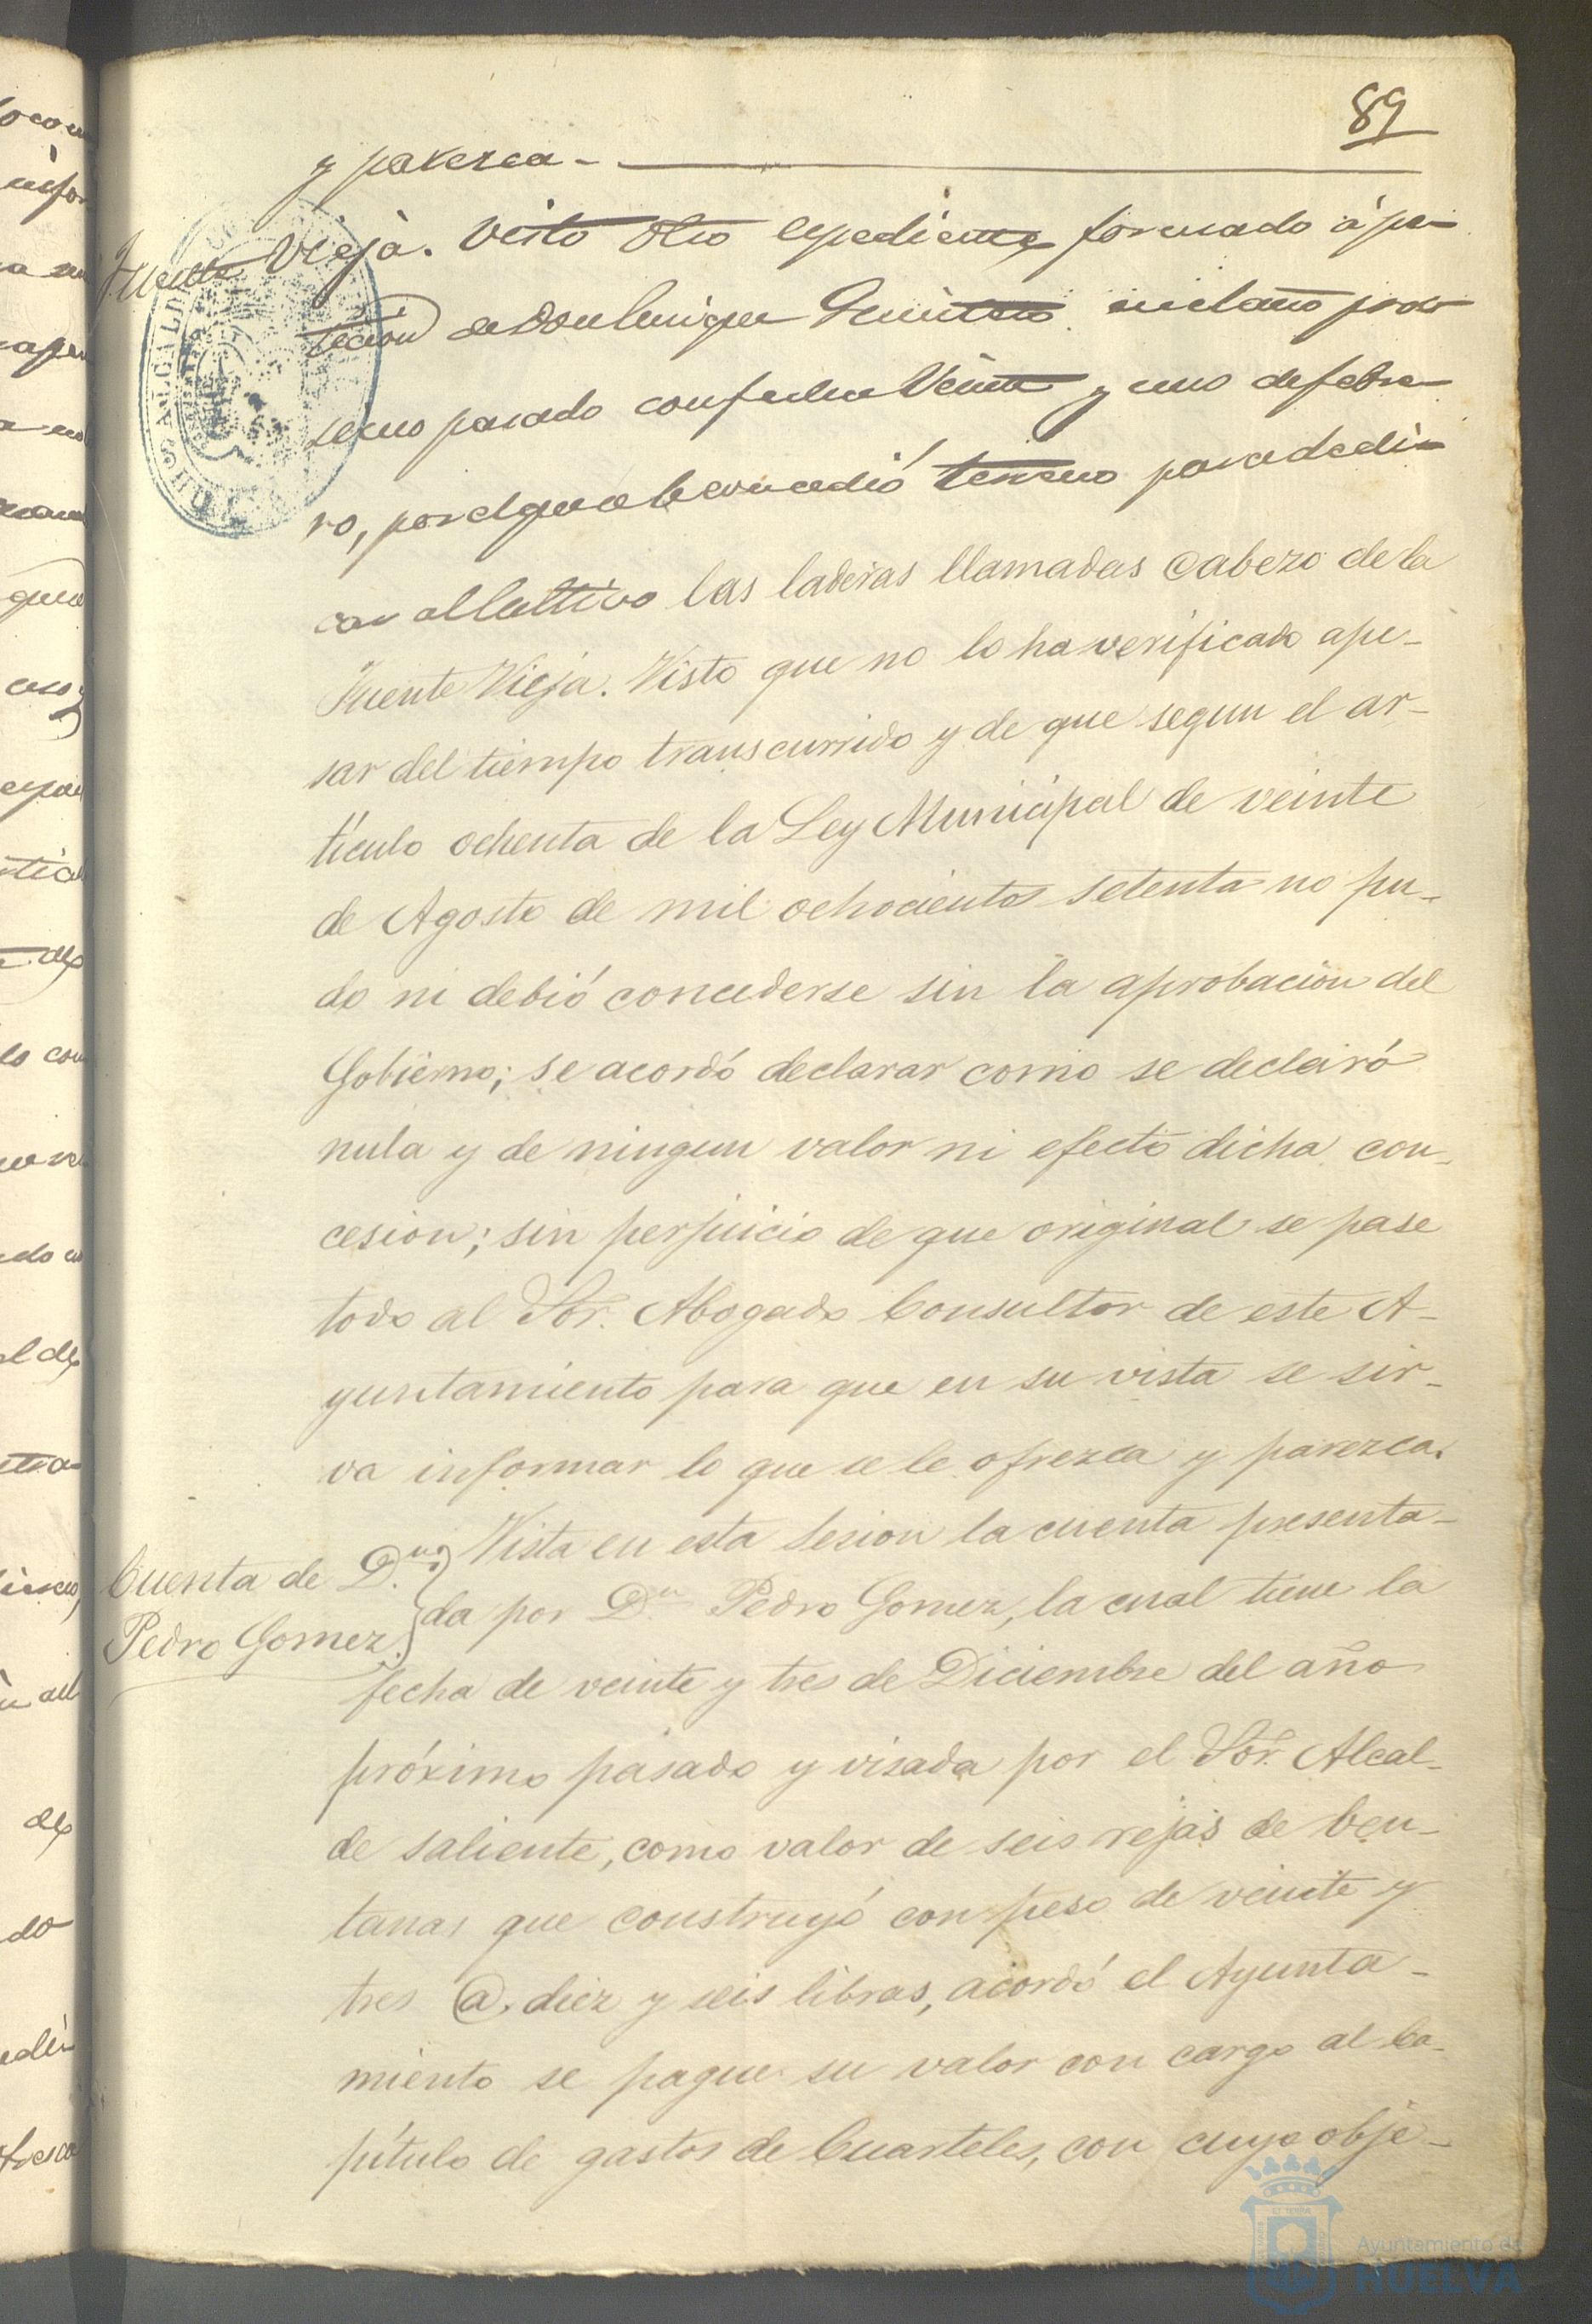 89
y parezca -
Fuente Vieja. Visto otro espediente formado á pe-
ticion de Don Enrique Quintero en el año pró-
simo pasado con fecha Veinte y uno de febre-
ro, por el que se le concedió terreno para dedi-
car al Cultivo las laderas llamadas Cabezo de la
Fuente Vieja. Visto que no lo ha verificado ape-
sar del tiempo transcurrido y de que segun el ar-
tículo ochenta de la Ley Municipal de veinte
de Agosto de mil ochocientos setenta no pu-
do ni debió concederse sin la aprobacion del
Gobierno; se acordó declarar como se declaró
nula y de ningun valor ni efecto dicha con-
cesion; sin perjuicio de que original se pase
todo al Sor. Abogado Consultor de este A-
yuntamiento para que en su vista se sir-
va informar lo que se le ofrezca y parezca.
Cuenta de D.n
Pedro Gomez.
Vista en esta Sesion la cuenta presenta-
da por D.n Pedro Gomez, la cual tiene la
fecha de veinte y tres de Diciembre del año
próximo pasado y visada por el Sor. Alcal-
de saliente, como valor de seis rejas de ben-
tanas que construyó con peso de veinte y
tres @. diez y seis libras, acordó el Ayunta-
miento se pague su valor con cargo al Ca-
pítulo de gastos de Cuarteles, con cuyo obje-
Ayuntamiento de
HUELVA